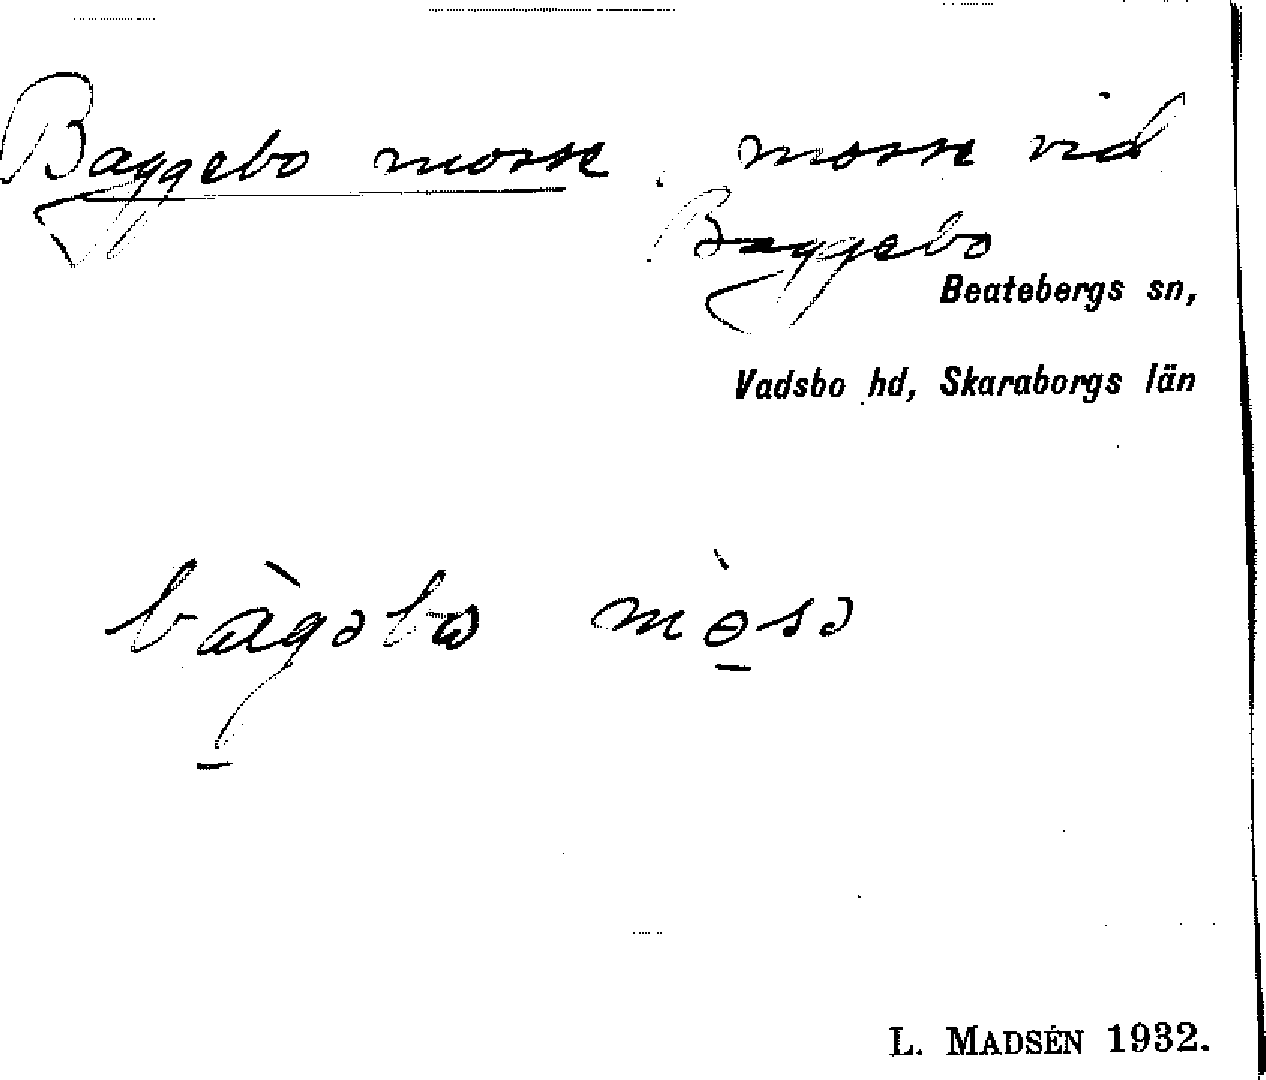 Baggebo mosse, mosse vid
Baggebo
Beatebergs sn,
Vadsbo hd, Skaraborgs län
bàgəbω mɵ̀sə
L. MADSÉN 1932.